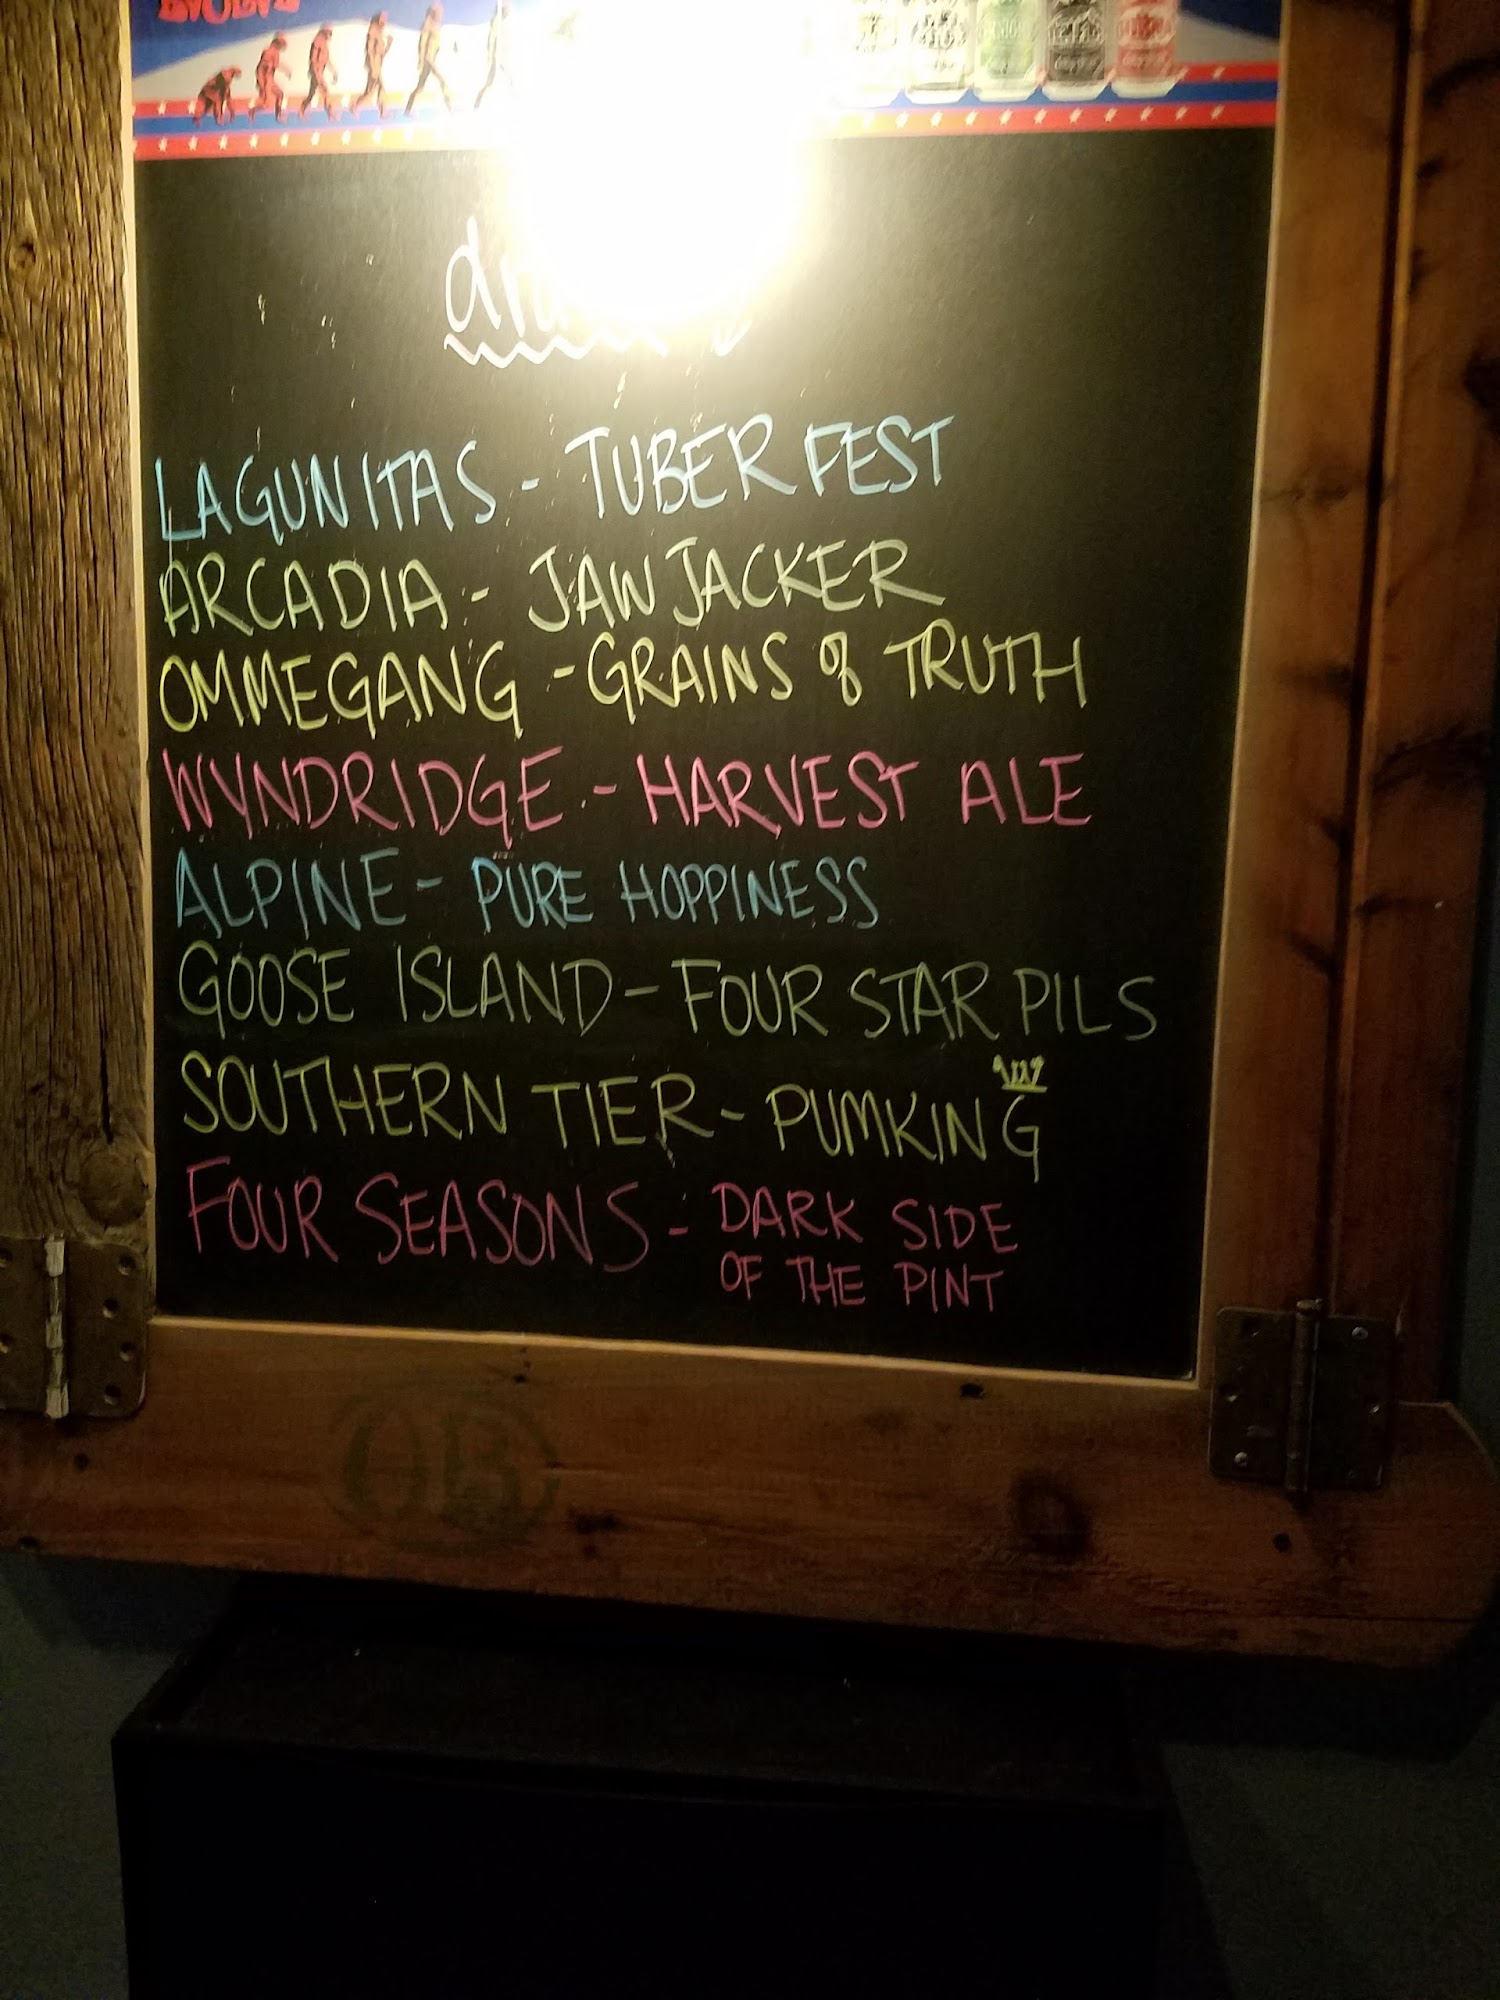 EVOLVE
LAGUNITAS - TUBERFEST
ARCADIA - JAW JACKER
OMMEGANG - GRAINS OF TRUTH
WYNDRIDGE - HARVEST ALE
ALPINE - PURE HOPPINESS
GOOSE ISLAND - FOUR STAR PILS
SOUTHERN TIER - PUMKING
FOUR SEASONS - DARK SIDE
OF THE PINT